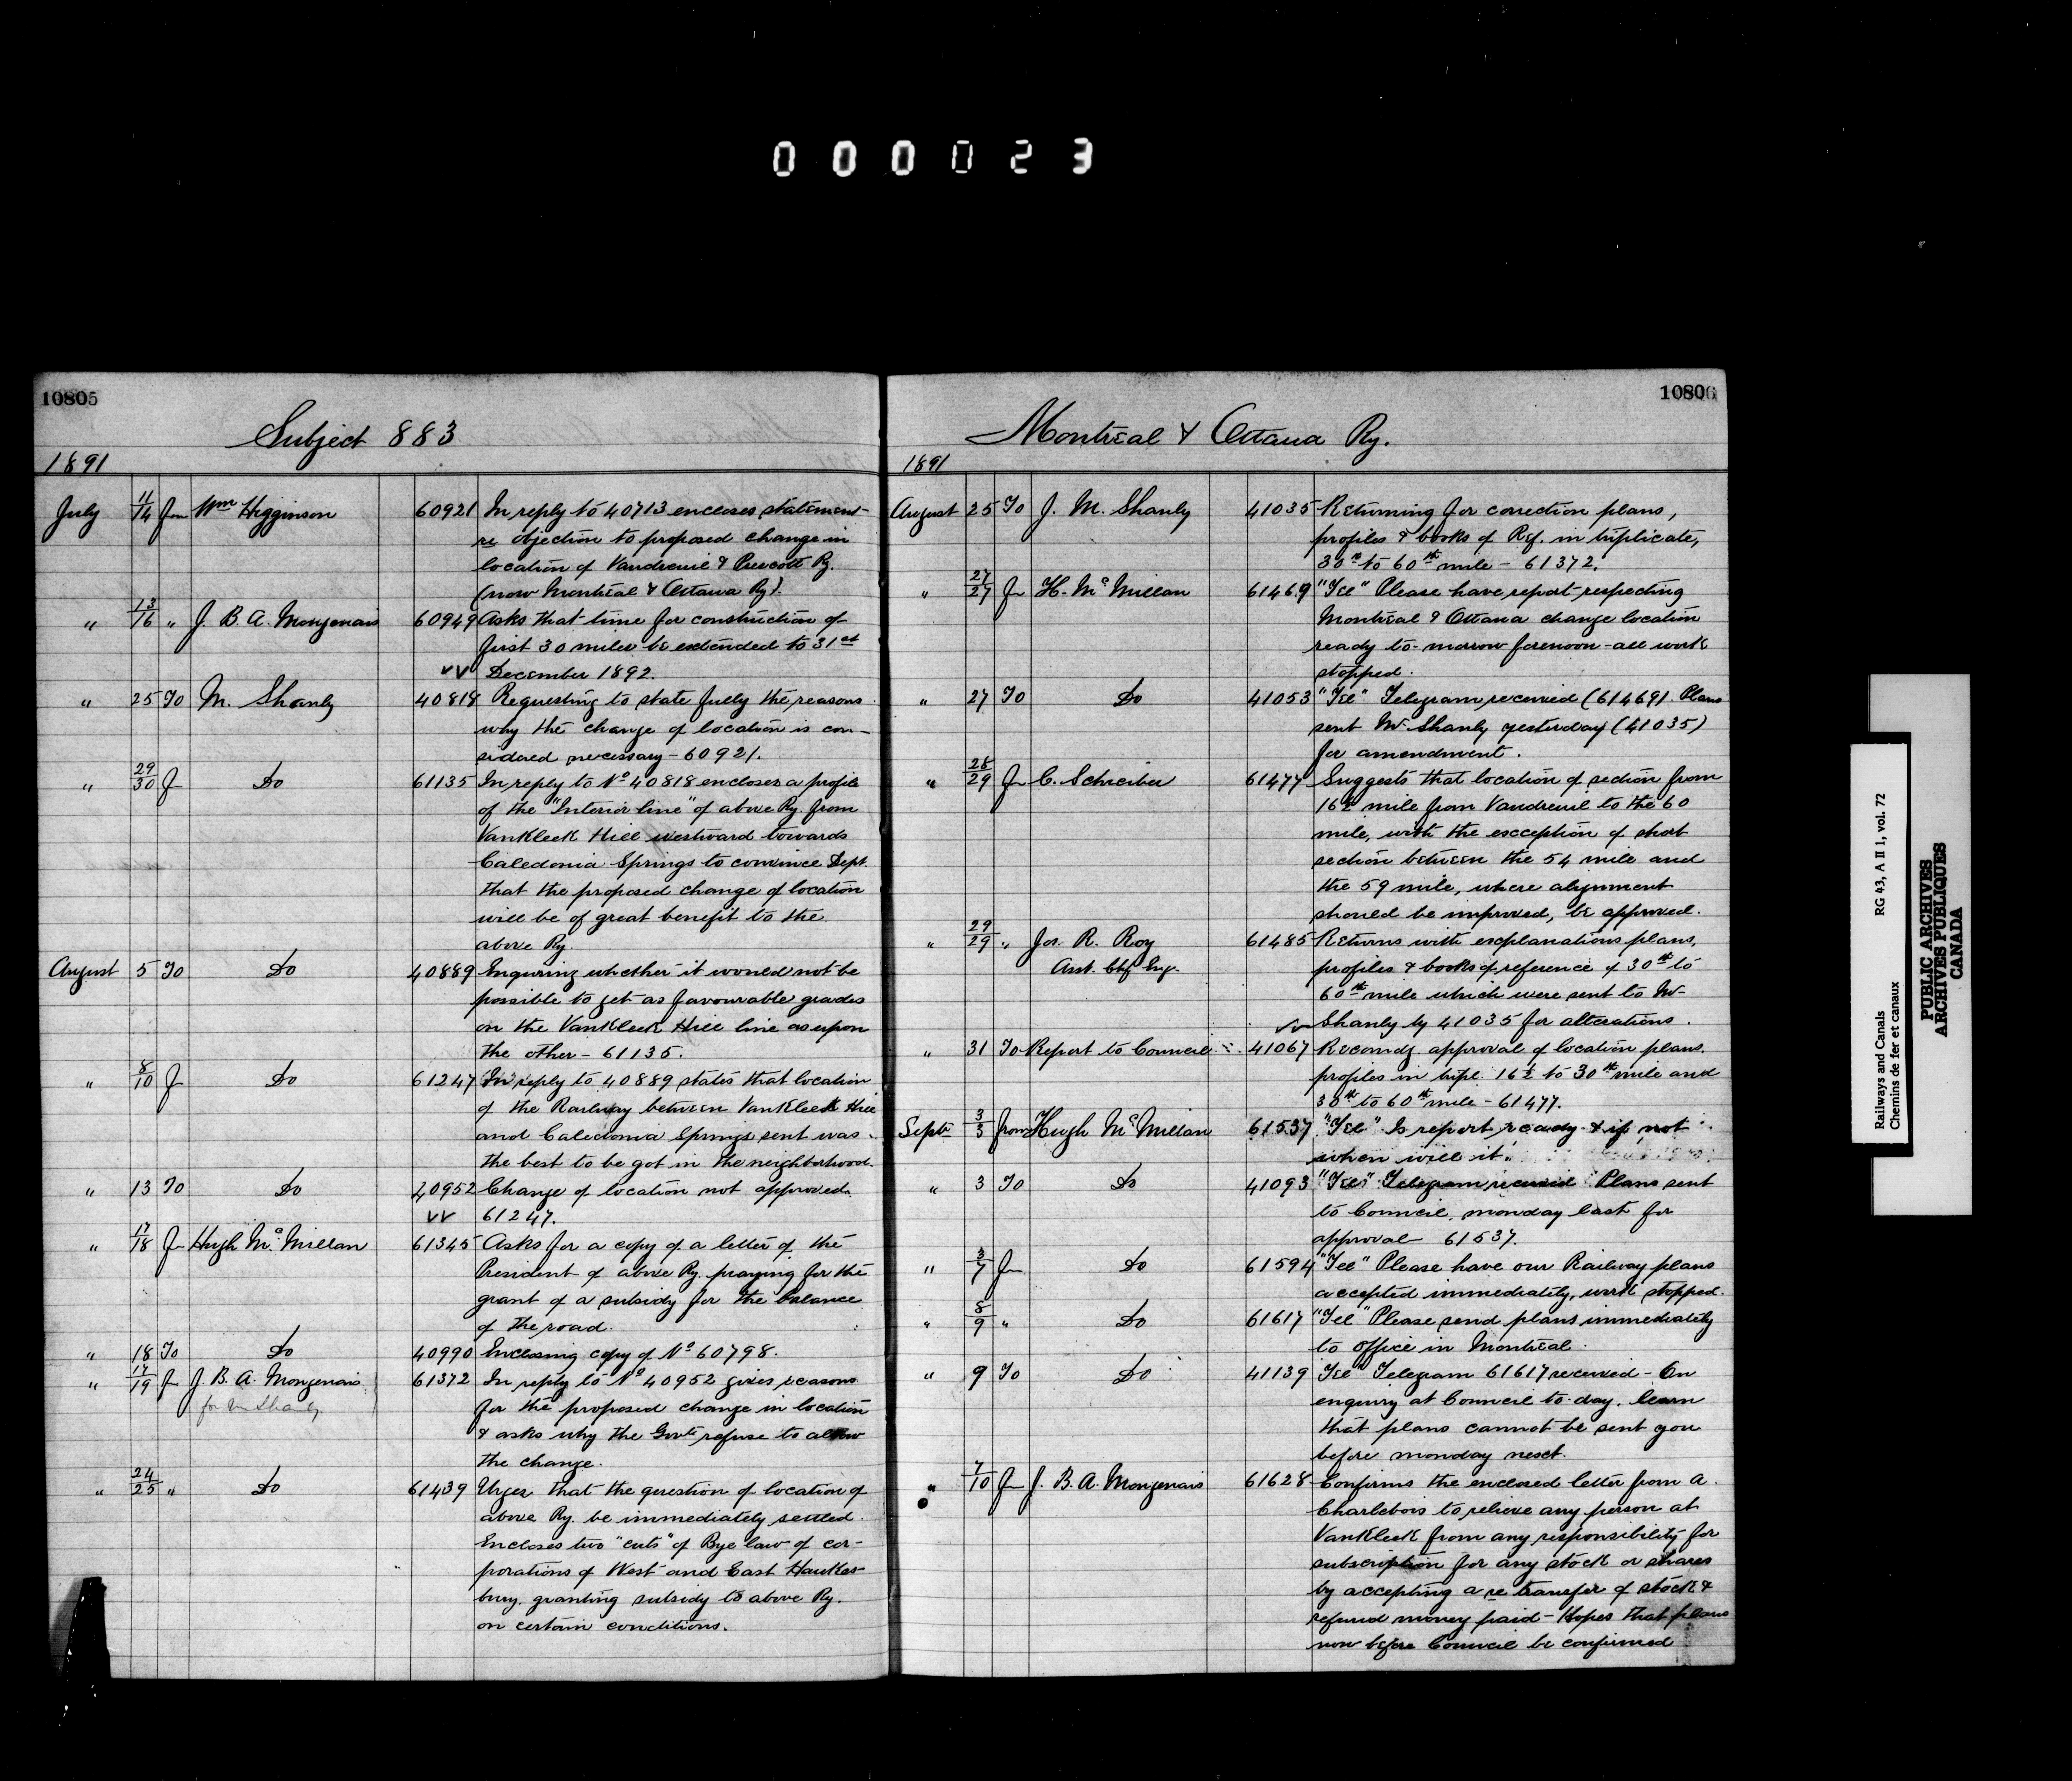 000023
10805
Subject 883
1891
July 11/14 fm Wm Higginson 60921 In reply to 40713 encloses statement
re objection to proposed change in
location of Vaudreuil & Prescott Ry.
(now Montreal & Ottawa Ry).
" 13/16 " J. B. A. Mongenais 60949 Asks that time for construction of
first 30 miles be extended to 31st
December 1892.
" 25 To M. Shanly 40818 Requesting to state fully the reasons
why the change of location is con-
sidered necessary - 60921.
" 29/30 f Do 61135 In reply to No 40818 encloses a profile
of the "Interior line" of above Ry. from
VanKleek Hill westward towards
Caledonia Springs to convince Dept.
that the proposed change of location
will be of great benefit to the
above Ry.
August 5 To Do 40889 Enquiring whether it would not be
possible to get as favourable grades
on the VanKleek Hill line as upon
the other - 61135.
" 8/10 f Do 61247 In reply to 40889 states that location
of the Railway between VanKleek Hill
and Caledonia Springs sent was
the best to be got in the neighborhood.
" 13 To Do 40952 Change of location not approved.
61247.
" 17/18 f Hugh McMillan 61345 Asks for a copy of a letter of the
President of above Ry. praying for the
grant of a subsidy for the balance
of the road.
" 18 To Do 40990 Enclosing copy of No 60798.
" 17/19 f J. B. A. Mongenais 61372 In reply to No 40952 gives reasons
for M Shanly for the proposed change in location
& asks why the Govt. refuse to allow
the change.
" 24/25 " Do 61439 Urges that the question of location of
above Ry. be immediately settled.
Encloses two "cuts" of Bye law of cor-
porations of West and East Hawkes-
bury, granting subsidy to above Ry.
on certain conditions.
10806
Montreal & Ottawa Ry.
1891
August 25 To J. M. Shanly 41035 Returning for correction plans,
profiles & books of Rf. in triplicate,
30th to 60th mile - 61372.
" 27/27 f H. McMillan 61469 "Tel" Please have report respecting
Montreal & Ottawa change location
ready to-morrow forenoon - all work
stopped.
" 27 To Do 41053 "Tel" Telegram received (61469). Plans
sent Mr Shanly yesterday (41035)
for amendment.
" 28/29 f C. Schreiber 61477 Suggests that location of section from
16½ mile from Vaudreuil to the 60
mile, with the exception of short
section between the 54 mile and
the 59 mile, where alignment
should be improved, be approved.
" 29/29 " Jos. R. Roy 61485 Returns with explanations plans,
Asst. Chf Eng. profiles & books of reference of 30th to
60th mile which were sent to Mr
Shanly by 41035 for alterations.
" 31 To Report to Council 41067 Recomdg. approval of location plans.
profiles in tripl. 16½ to 30th mile and
30th to 60th mile - 61477.
Sept. 3/3 from Hugh McMillan 61537 "Tel" Is report ready & if not
when will it.
" 3 To Do 41093 "Tel" Telegram received Plans sent
to Council, monday last for
approval 61537.
" 3/7 f Do 61594 "Tel" Please have our Railway plans
accepted immediately, work stopped.
" 8/9 " Do 61617 "Tel" Please send plans immediately
to office in Montreal.
" 9 To Do 41139 "Tel" Telegram 61617 received - On
enquiry at Council to-day, learn
that plans cannot be sent you
before monday next.
" 7/10 f J. B. A. Mongenais 61628 Confirms the enclosed letter from A.
Charlebois to relieve any person at
VanKleek from any responsibility for
subscription for any stock or shares
by accepting a re transfer of stock &
refund money paid - Hopes that plans
now before Council be confirmed
Railways and Canals RG 43, A II 1, vol. 72
Chemins de fer et canaux
PUBLIC ARCHIVES
ARCHIVES PUBLIQUES
CANADA